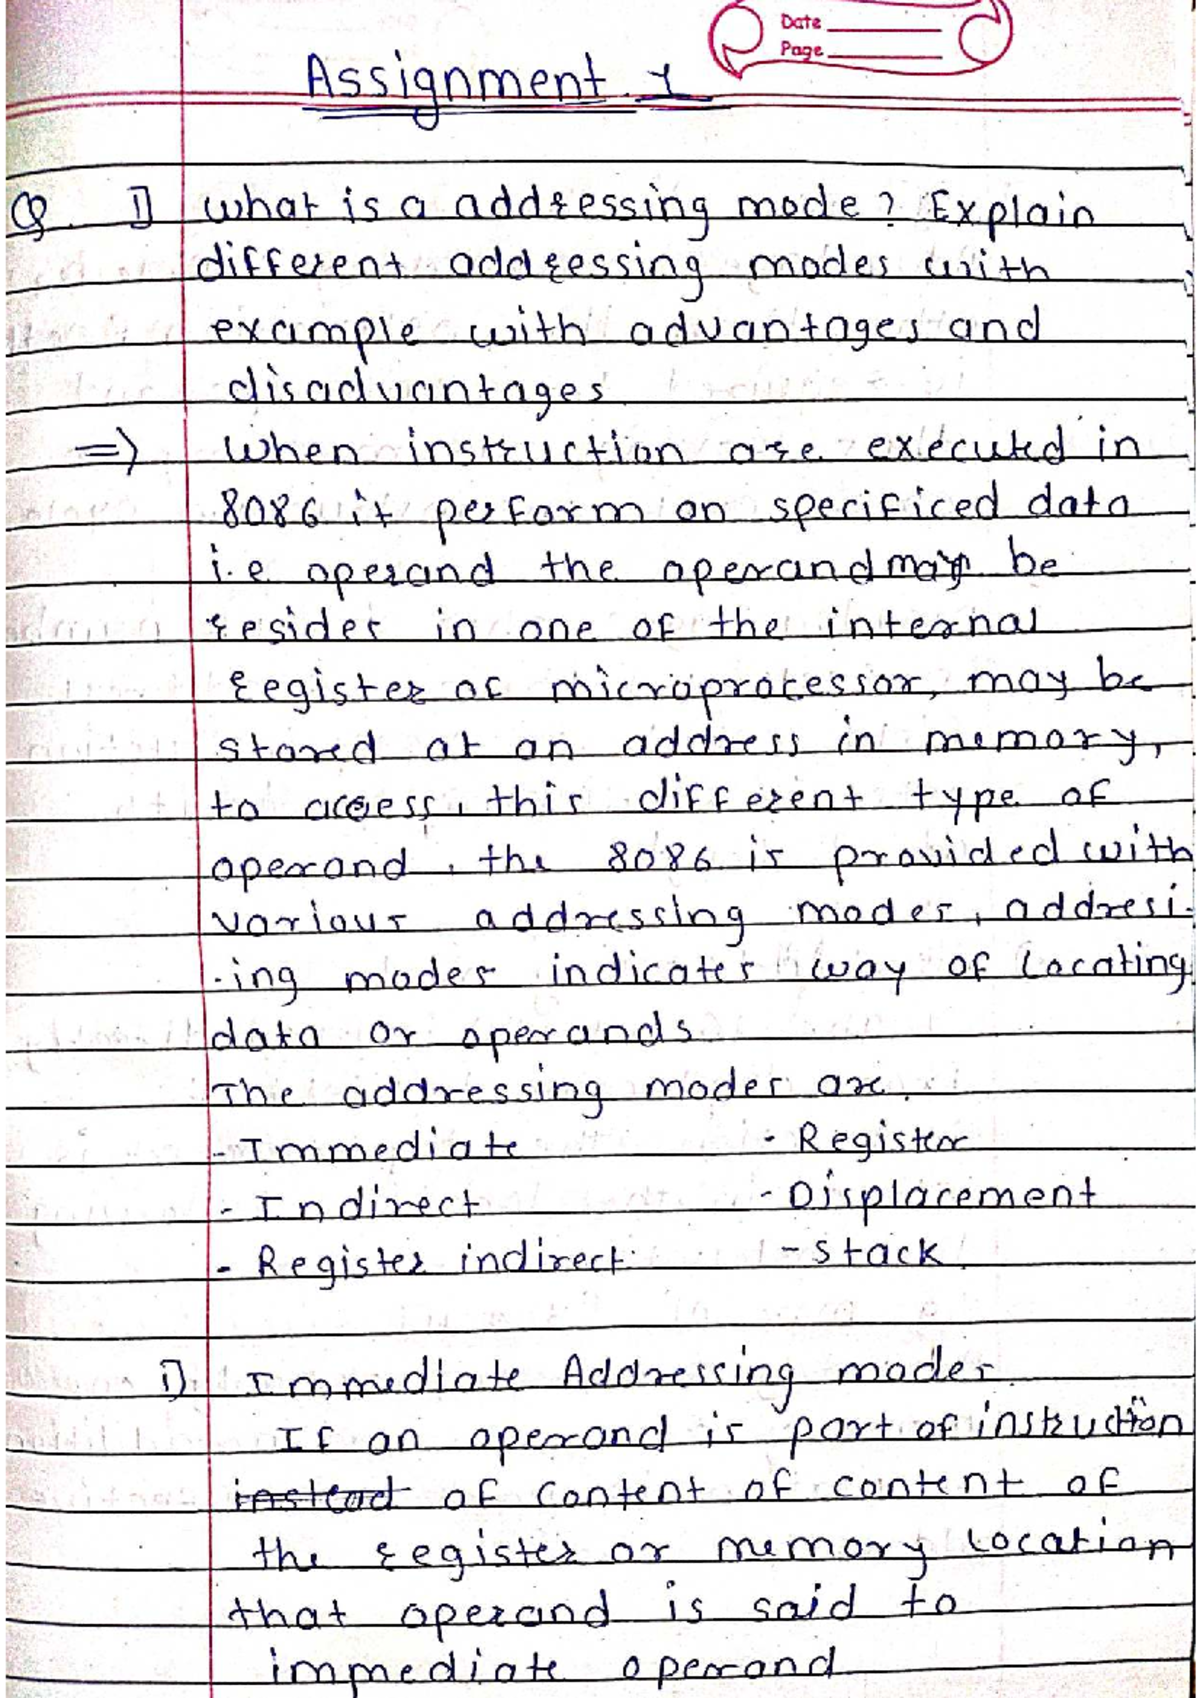 Date
Page
Assignment 1
Q. 1) what is a addressing mode? Explain
different addressing modes with
example with advantages and
disadvantages
=> when instruction are executed in
8086 it perform on specificed data
i.e operand the operand may be
resides in one of the internal
register of microprocessor, may be
stored at an address in memory,
to access, this different type of
operand, the 8086 is provided with
various addressing modes, addresi-
-ing modes indicates way of locating
data or operands
The addressing modes are,
- Immediate - Register
- Indirect - Displacement
- Register indirect - stack
i) Immediate Addressing modes
If an operand is part of instruction
instead of content of content of
the register or memory location
that operand is said to
immediate operand